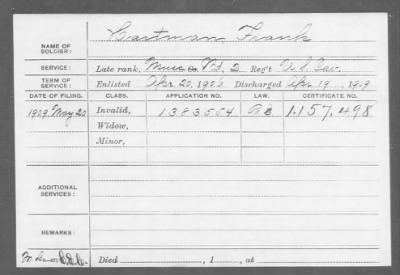 NAME OF SOLDIER: Eastman, Frank
SERVICE: Late rank, Reg't U.S. Cav.
TERM OF SERVICE: Enlisted Apr. 20, 1906 Discharged Apr. 19, 1909
DATE OF FILING. CLASS. APPLICATION NO. LAW. CERTIFICATE NO.
1909 May 20 Invalid, 1383554 1.157.498
Widow,
Minor,
ADDITIONAL SERVICES:
REMARKS:
Died , 1 , at